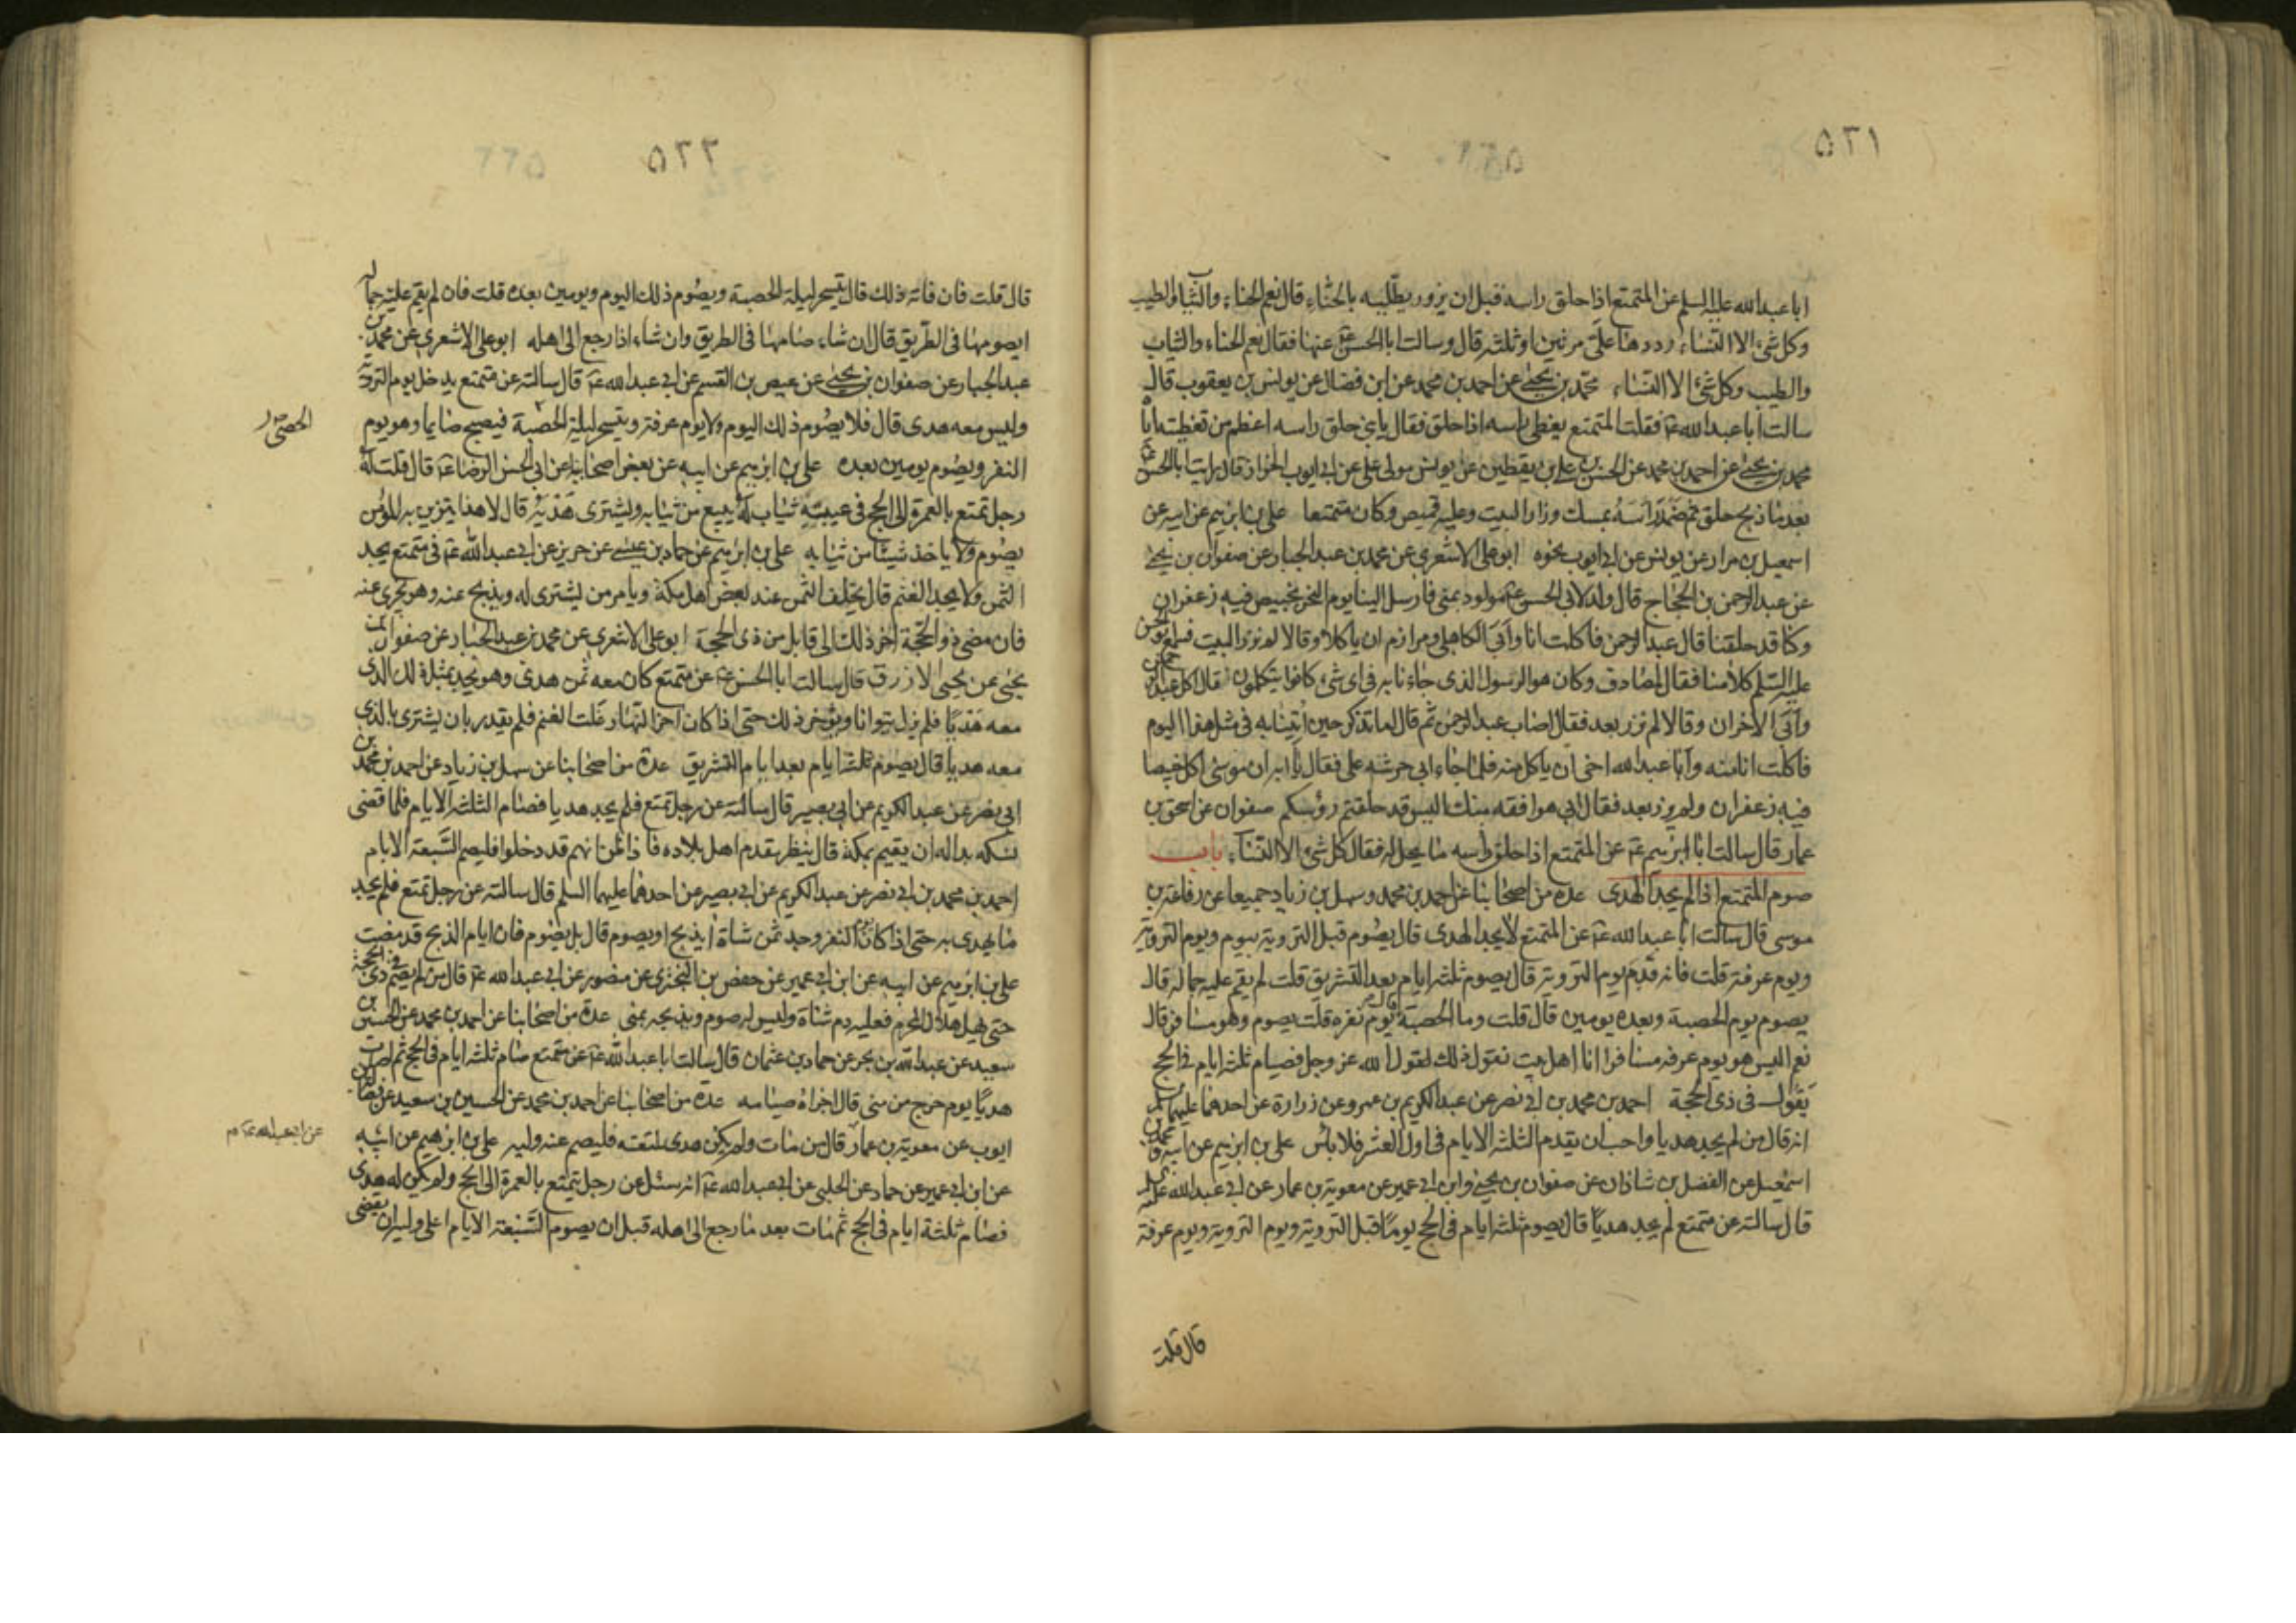 ٥٢١
ابا عبد الله عليه السلم عن المتمتع اذا حلق راسه قبل ان يزور يطليه بالحناء قال نعم الحناء والثياب والطيب
وكل شئ الا النساء رددها على مرتين او ثلثه قال وسالت ابا الحسن ع عنها فقال نعم الحناء والثياب
والطيب وكل شئ الا النساء محمد بن يحيى عن احمد بن محمد عن ابن فضال عن يونس بن يعقوب قال
سالت ابا عبد الله ع فقلت المتمتع يغطى راسه اذا حلق فقال يا بنى حلق راسه اعظم من تغطيته اياه
محمد بن يحيى عن احمد بن محمد عن الحسن بن على بن يقطين عن يونس مولى على عن ابى ايوب الخزاز قال رايت ابا الحسن ع
بعد ما ذبح حلق ثم ضمد راسه بمسك وزار البيت وعليه قميص وكان متمتعا على بن ابرهيم عن ابيه عن
اسمعيل بن مرار عن يونس عن ابى ايوب نحوه ابو على الاشعرى عن محمد بن عبد الجبار عن صفوان بن يحيى
عن عبد الرحمن بن الحجاج قال ولد لابى الحسن ع مولود بمنى فارسل الينا يوم النحر بخبيص فيه زعفران
وكنا قد حلقنا قال عبد الرحمن فاكلت انا وابى الكاهلى ومرازم ان ياكلا وقالا لم نزر البيت فسمع ابو الحسن
عليه السلم كلامنا فقال لمصادف وكان هو الرسول الذى جاءنا به فى اى شئ كانوا يتكلمون فقال اكل عبد الرحمن
وابى الاخران وقالا لم نزر بعد فقال اصاب عبد الرحمن ثم قال اما تذكر حين اتينا به فى مثل هذا اليوم
فاكلت انا منه وابا عبد الله اخى ان ياكل منه فلما جاء ابى حرشه على فقال يا ابه ان موسى اكل خبيصا
فيه زعفران ولم يزر بعد فقال ابى هو افقه منك اليس قد حلقتم رؤسكم صفوان عن اسحق بن
عمار قال سالت ابا ابرهيم ع عن المتمتع اذا حلق راسه ما يحل له فقال كل شئ الا النساء باب
صوم المتمتع اذا لم يجد الهدى عدة من اصحابنا عن احمد بن محمد وسهل بن زياد جميعا عن رفاعة بن
موسى قال سالت ابا عبد الله ع عن المتمتع لا يجد الهدى قال يصوم قبل التروية بيوم ويوم التروية
ويوم عرفة قلت فانه قدم يوم التروية قال يصوم ثلثه ايام بعد التشريق قلت لم يقم عليه جماله قال
يصوم يوم الحصبة وبعده يومين قال قلت وما الحصبة قال يوم نفره قلت يصوم وهو مسافر قال
نعم اليس هو يوم عرفه مسافرا انا اهل بيت نقول ذلك لقول الله عز وجل فصيام ثلثه ايام فى الحج
يقول فى ذى الحجة احمد بن محمد بن ابى نصر عن عبد الكريم بن عمرو عن زرارة عن احدهما عليهما السلم
انه قال من لم يجد هديا واحب ان يقدم الثلثه الايام فى اول العشر فلا باس على بن ابرهيم عن ابيه ومحمد بن
اسمعيل عن الفضل بن شاذان عن صفوان بن يحيى وابن ابى عمير عن معوية بن عمار عن ابى عبد الله عليه السلم
قال سالته عن متمتع لم يجد هديا قال يصوم ثلثه ايام فى الحج يوما قبل التروية ويوم التروية ويوم عرفة
قال قلت
٥٢٢
قال قلت فان فاته ذلك قال يتسحر ليلة الحصبة ويصوم ذلك اليوم ويومين بعده قلت فان لم يقم عليه جماله
ايصومها فى الطريق قال ان شاء صامها فى الطريق وان شاء اذا رجع الى اهله ابو على الاشعرى عن محمد بن
عبد الجبار عن صفوان بن يحيى عن عيص بن القسم عن ابى عبد الله ع قال سالته عن متمتع يدخل يوم التروية
وليس معه هدى قال فلا يصوم ذلك اليوم ولا يوم عرفة ويتسحر ليلة الحصبة فيصبح صايما وهو يوم
النفر ويصوم يومين بعده على بن ابرهيم عن ابيه عن بعض اصحابنا عن ابى الحسن الرضا ع قال قلت له
رجل تمتع بالعمرة الى الحج فى عيبته ثياب له يبيع من ثيابه ويشترى هديه قال لا هذا يتزين به المؤمن
يصوم ولا ياخذ شيئا من ثيابه على بن ابرهيم عن حماد بن عيسى عن حريز عن ابى عبد الله ع فى متمتع يجد
الثمن ولا يجد الغنم قال يخلف الثمن عند بعض اهل مكة ويامر من يشترى له ويذبح عنه وهو يجزى عنه
فان مضى ذو الحجة اخر ذلك الى قابل من ذى الحجة ابو على الاشعرى عن محمد بن عبد الجبار عن صفوان بن
يحيى عن يحيى الازرق قال سالت ابا الحسن ع عن متمتع كان معه ثمن هدى وهو يجد بمثل ذلك الذى
معه هديا فلم يزل يتوانا ويؤخر ذلك حتى اذا كان اخر النهار غلت الغنم فلم يقدر بان يشترى بالذى
معه هديا قال يصوم ثلثه ايام بعد ايام التشريق عدة من اصحابنا عن سهل بن زياد عن احمد بن محمد بن
ابى نصر عن عبد الكريم عن ابى بصير قال سالته عن رجل تمتع فلم يجد هديا فصام الثلثه الايام فلما قضى
نسكه بدا له ان يقيم بمكة قال ينظر مقدم اهل بلاده فاذا ظن انهم قد دخلوا فليصم السبعة الايام
احمد بن محمد بن ابى نصر عن عبد الكريم عن ابى بصير عن احدهما عليهما السلم قال سالته عن رجل تمتع فلم يجد
ما يهدى به حتى اذا كان يوم النفر وجد ثمن شاة ايذبح او يصوم قال بل يصوم فان ايام الذبح قد مضت
على بن ابرهيم عن ابيه عن ابن ابى عمير عن حفص بن البخترى عن منصور عن ابى عبد الله ع قال من لم يصم فى ذى الحجة
حتى يهل هلال المحرم فعليه دم شاة وليس له صوم ويذبحه بمنى عدة من اصحابنا عن احمد بن محمد عن الحسين بن
سعيد عن عبد الله بن بحر عن حماد بن عثمان قال سالت ابا عبد الله ع عن متمتع صام ثلثه ايام فى الحج ثم اصاب
هديا يوم خرج من منى قال اجزاه صيامه عدة من اصحابنا عن احمد بن محمد عن الحسين بن سعيد عن فضالة بن
ايوب عن معوية بن عمار قال من مات ولم يكن هدى لمتعته فليصم عنه وليه على بن ابرهيم عن ابيه
عن ابن ابى عمير عن حماد عن الحلبى عن ابى عبد الله ع انه سئل عن رجل يتمتع بالعمرة الى الحج ولم يكن له هدى
فصام ثلثة ايام فى الحج ثم مات بعد ما رجع الى اهله قبل ان يصوم السبعة الايام اعلى وليه ان يقضى
عن ابى عبد الله ع م